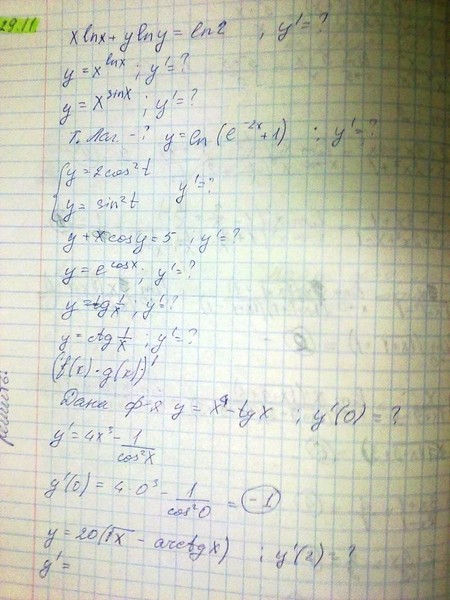 29.11
x lnx + y lny = ln2 ; y' = ?
y = x^lnx ; y' = ?
y = x^sinx ; y' = ?
Т. Лаг. - ? y = ln (e^-2x + 1) ; y' = ?
{ y = 2cos²t
y = sin²t y' = ?
y + x cosy = 5 , y' = ?
y = e^cosx ; y' = ?
y = tg 1/x ; y' = ?
y = ctg 1/x ; y' = ?
(f(x) · g(x))'
Дана ф-я y = x⁴ - tgx ; y'(0) = ?
y' = 4x³ - 1/cos²x
y'(0) = 4 · 0³ - 1/cos²0 = -1
y = 20(√x - arcctgx) ; y'(2) = ?
y' =
решить: